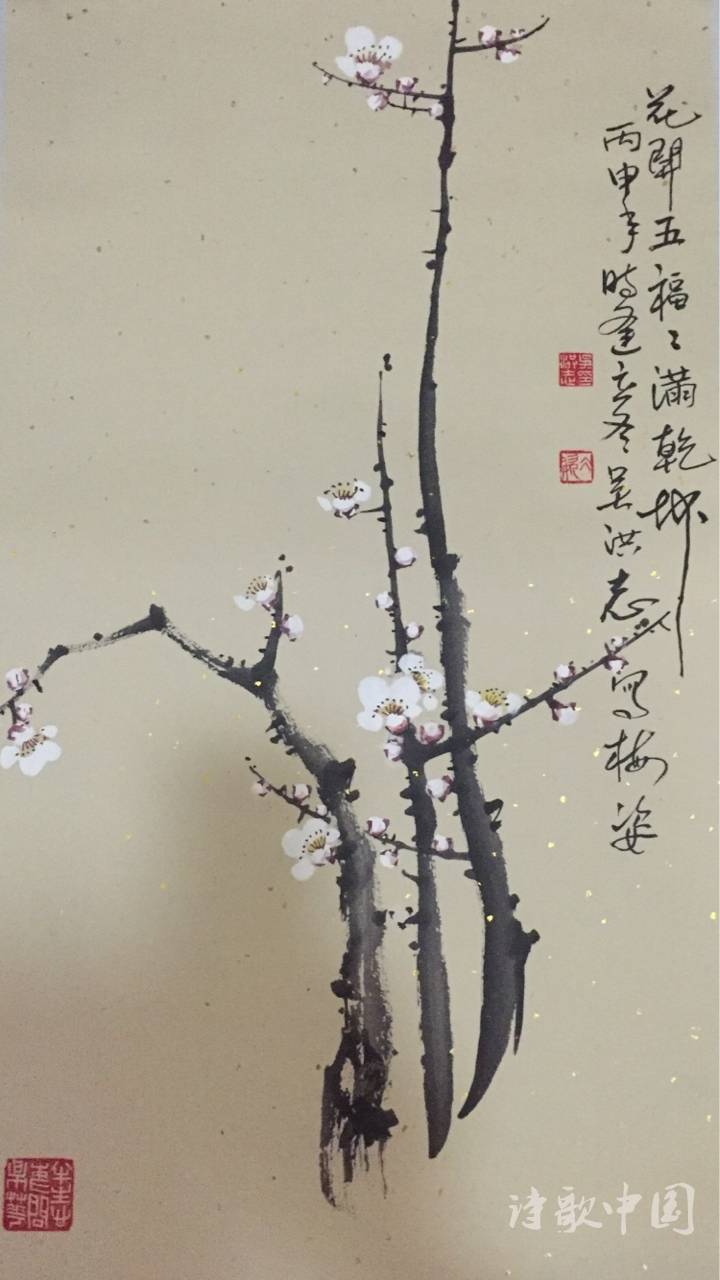 花開五福〻滿乾坤
丙申年時逢立冬吴洪志寫梅姿
诗歌中国